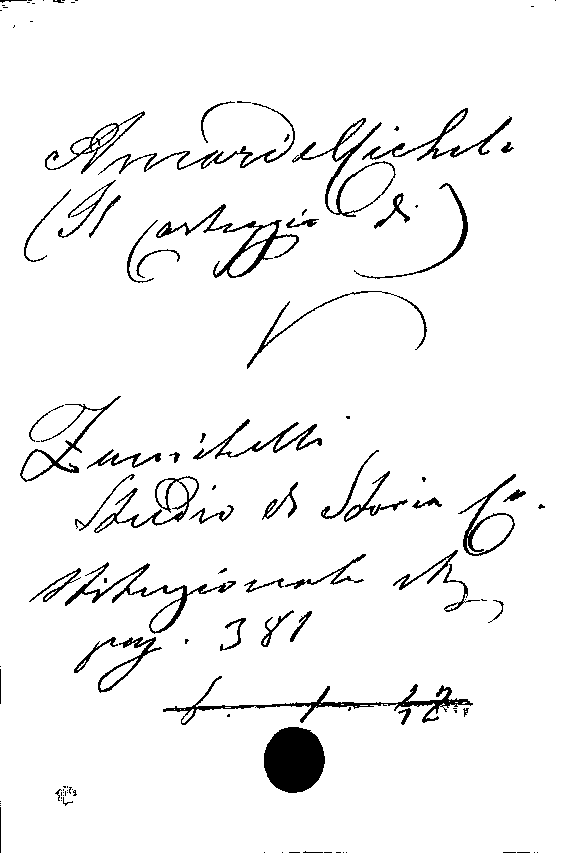 Amari Michele
(Il carteggio di)
V
Zanichelli
Studio di Storia Co-
stituzionale
pag. 381
6. 1.